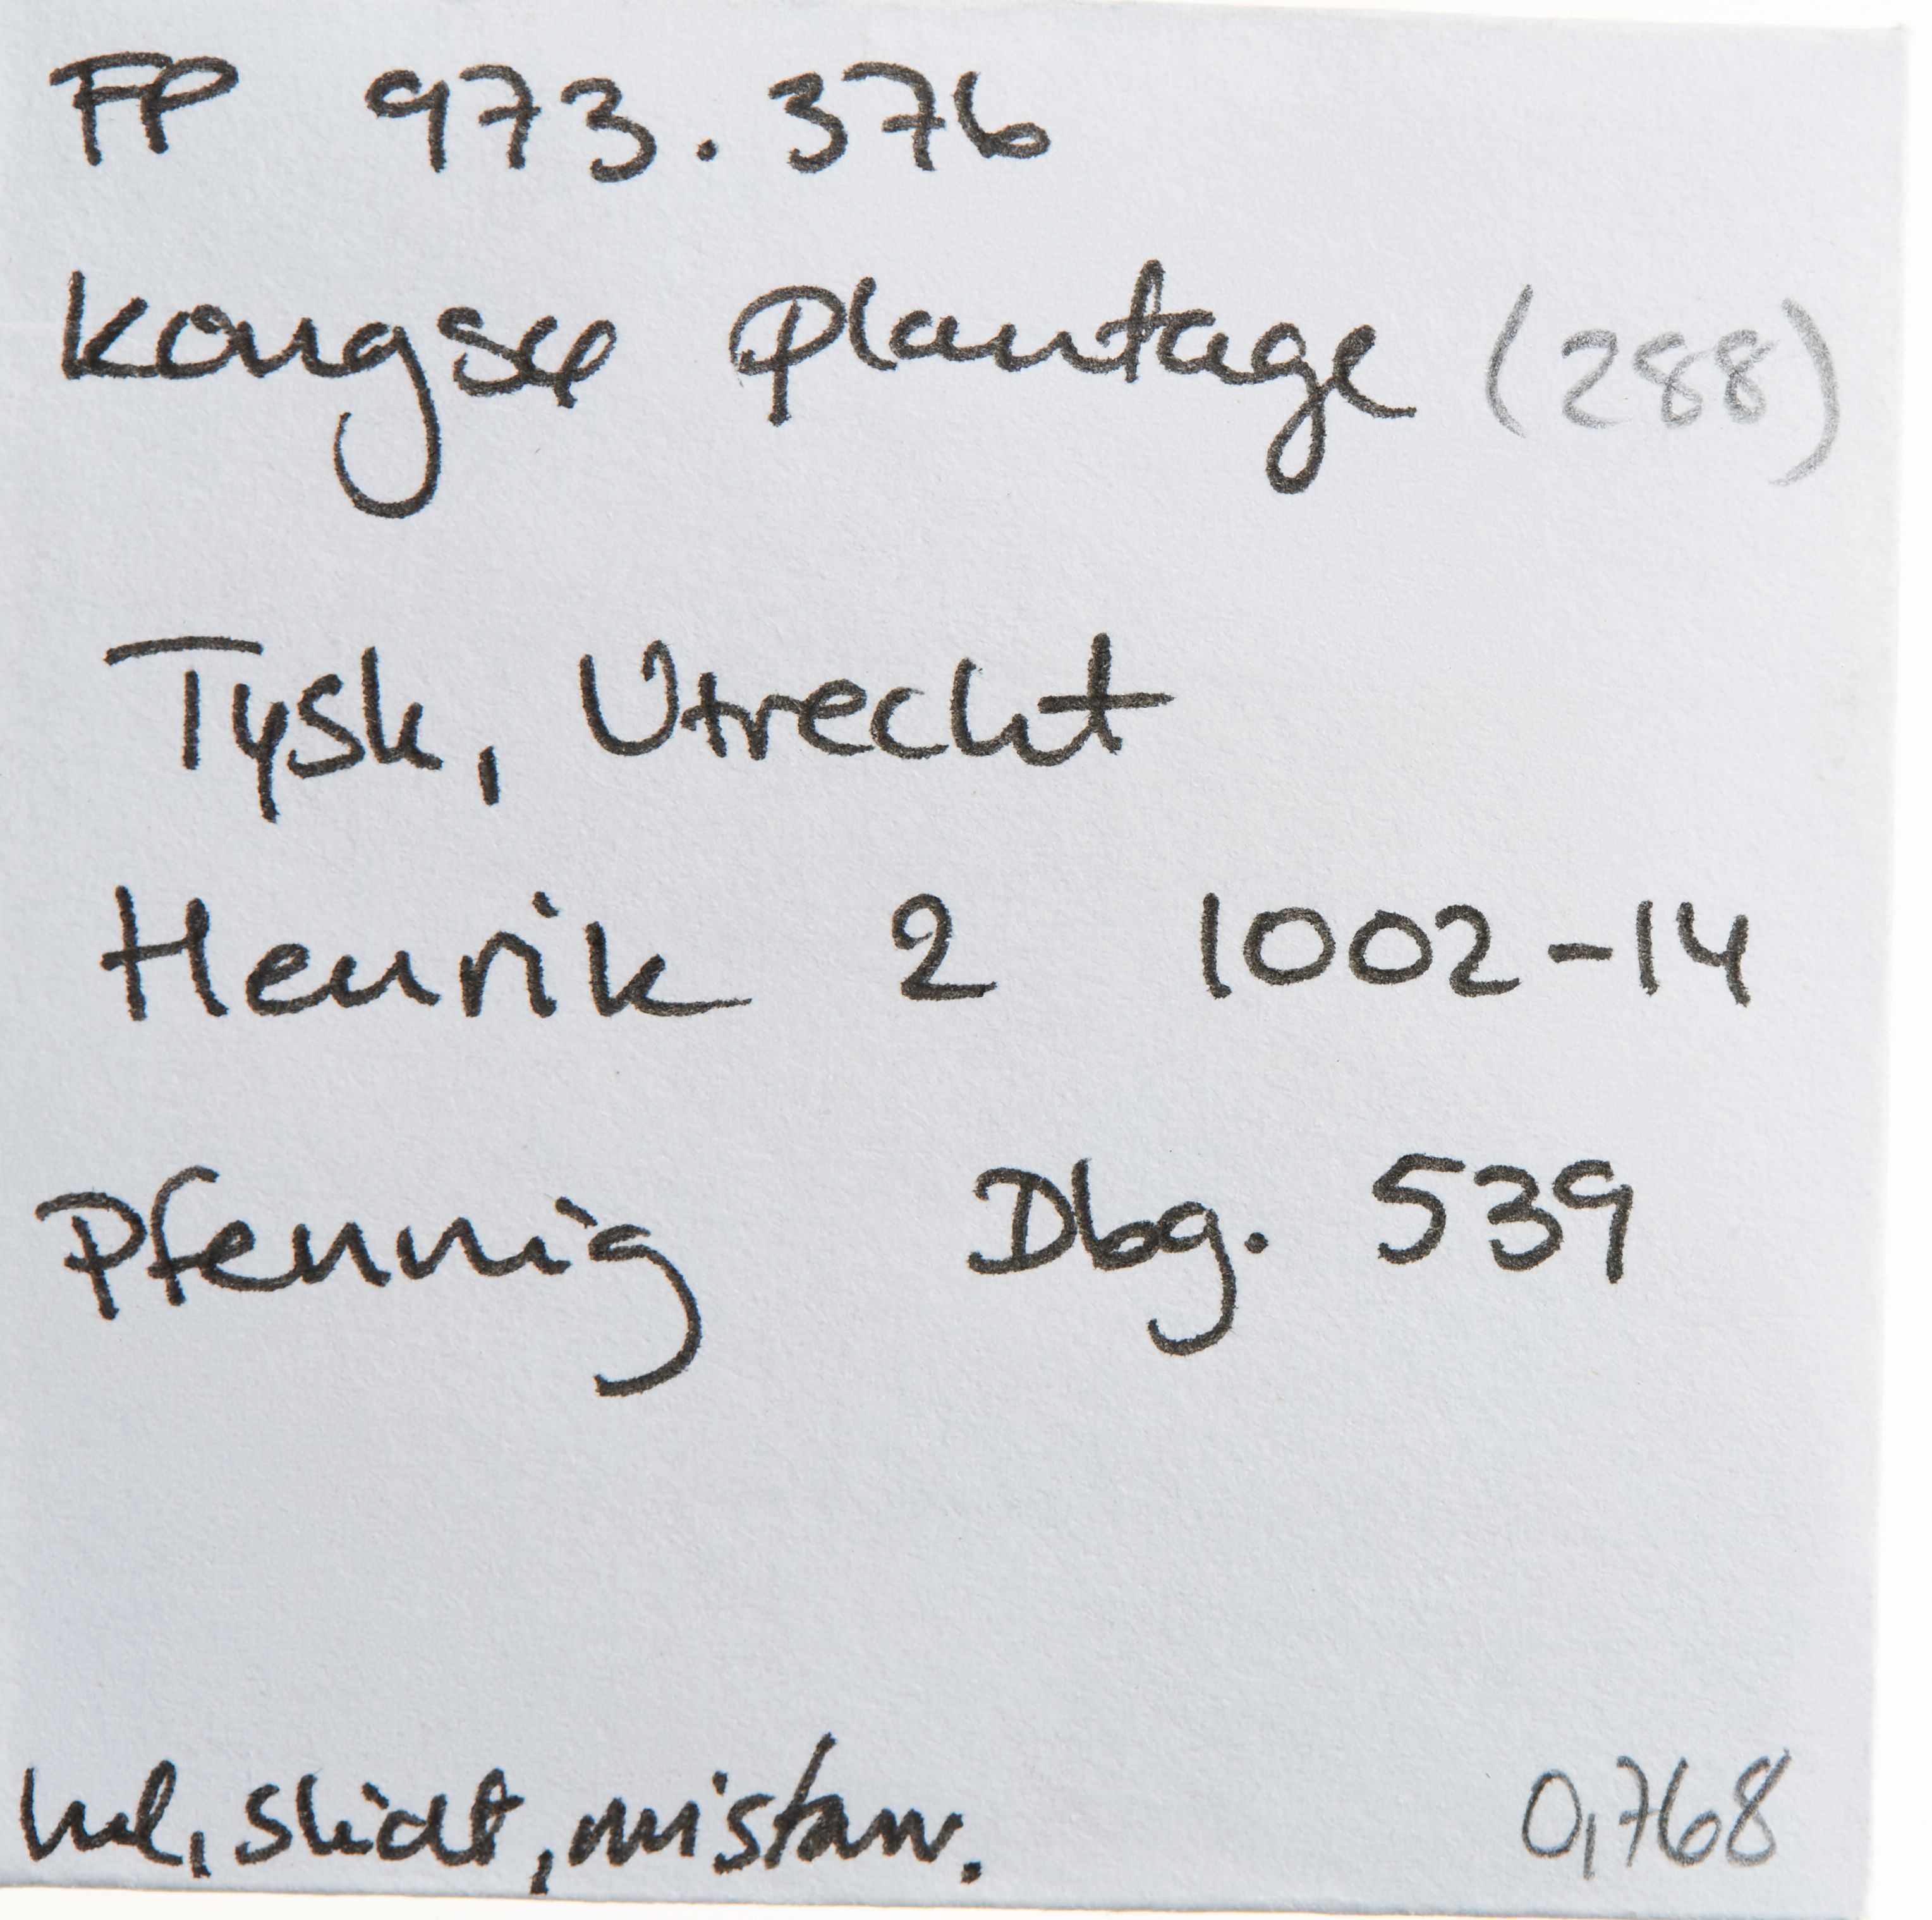 FP 973.376
Kongsø Plantage (288)
Tysk, Utrecht
Henrik 2 1002-14
Pfennig Dbg. 539
hel, slidt, mistanv. 0,768